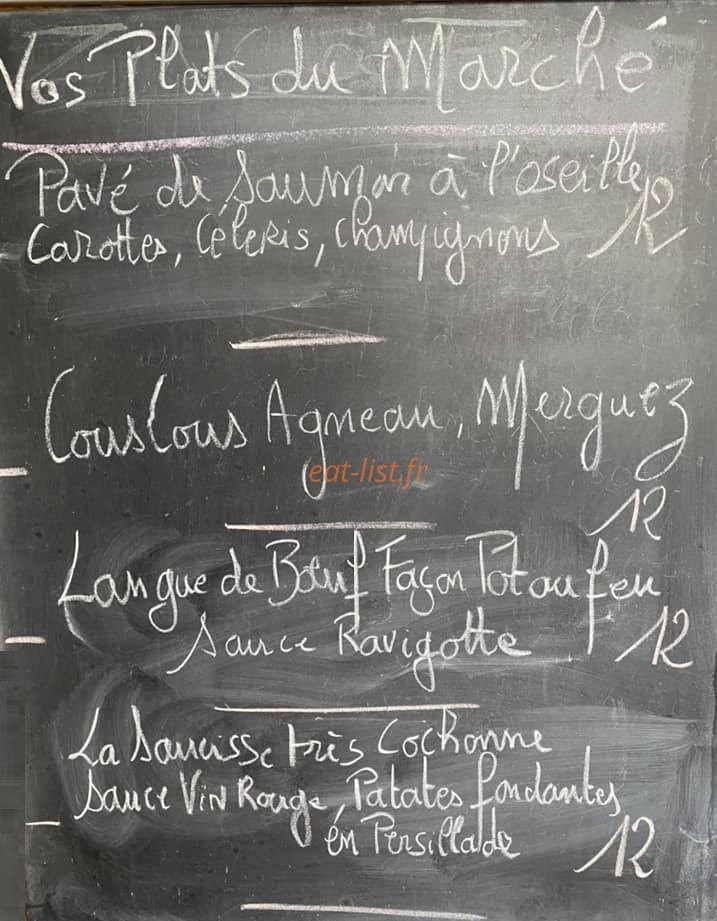 Vos Plats du Marché
Pavé de Saumon à l'oseille,
Carottes, Céleris, champignons 12
CousCous Agneau, Merguez
eat-list.fr
12
Langue de Bœuf Façon Pot au feu
Sauce Ravigotte 12
La Saucisse très Cochonne
Sauce Vin Rouge, Patates fondantes
en Persillade 12